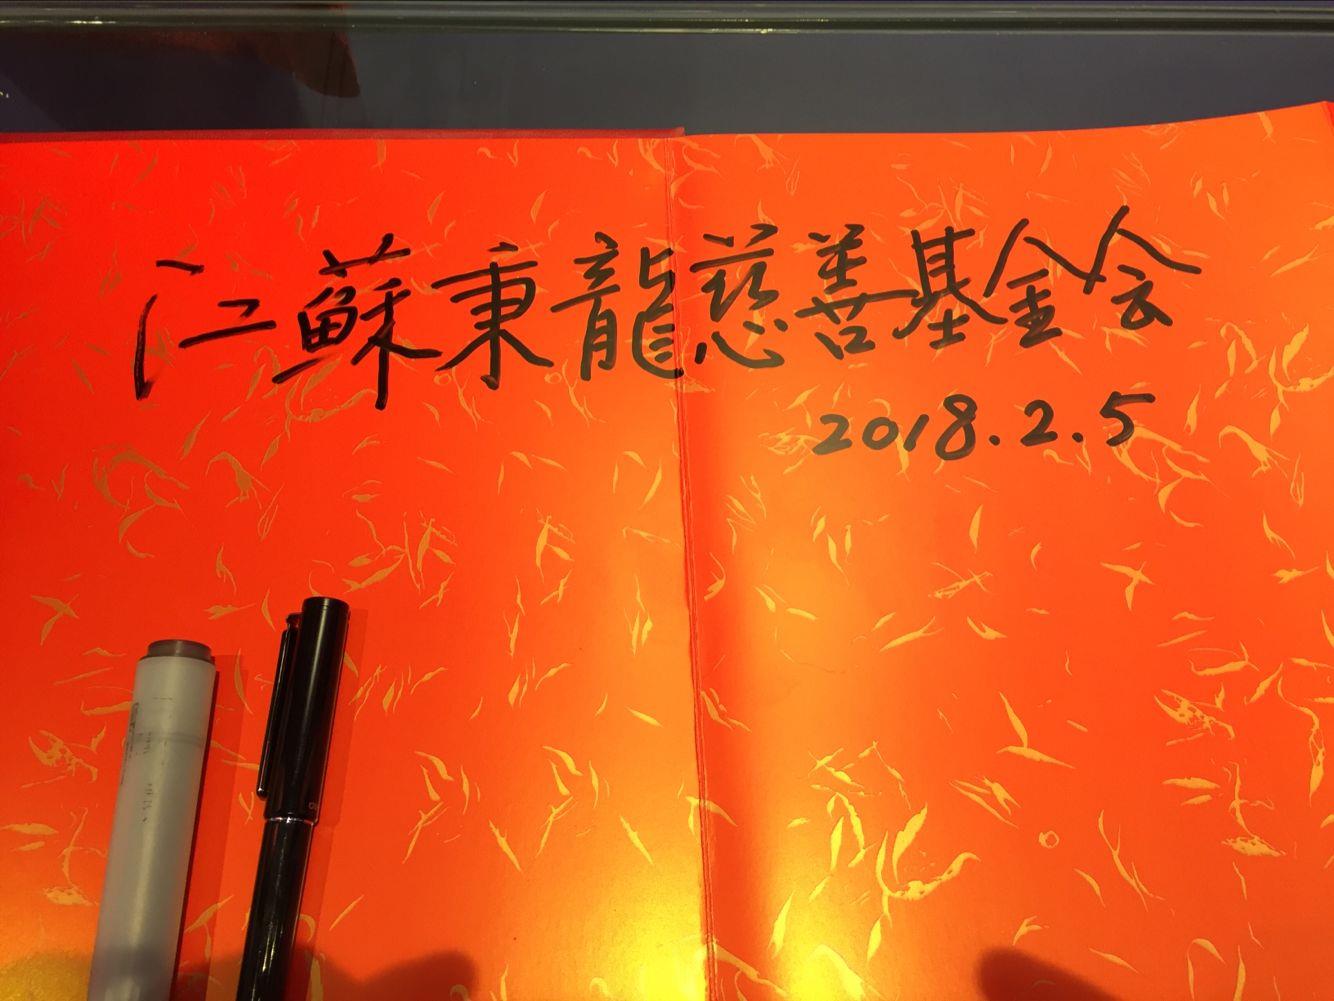 江蘇秉龍慈善基金会
2018.2.5